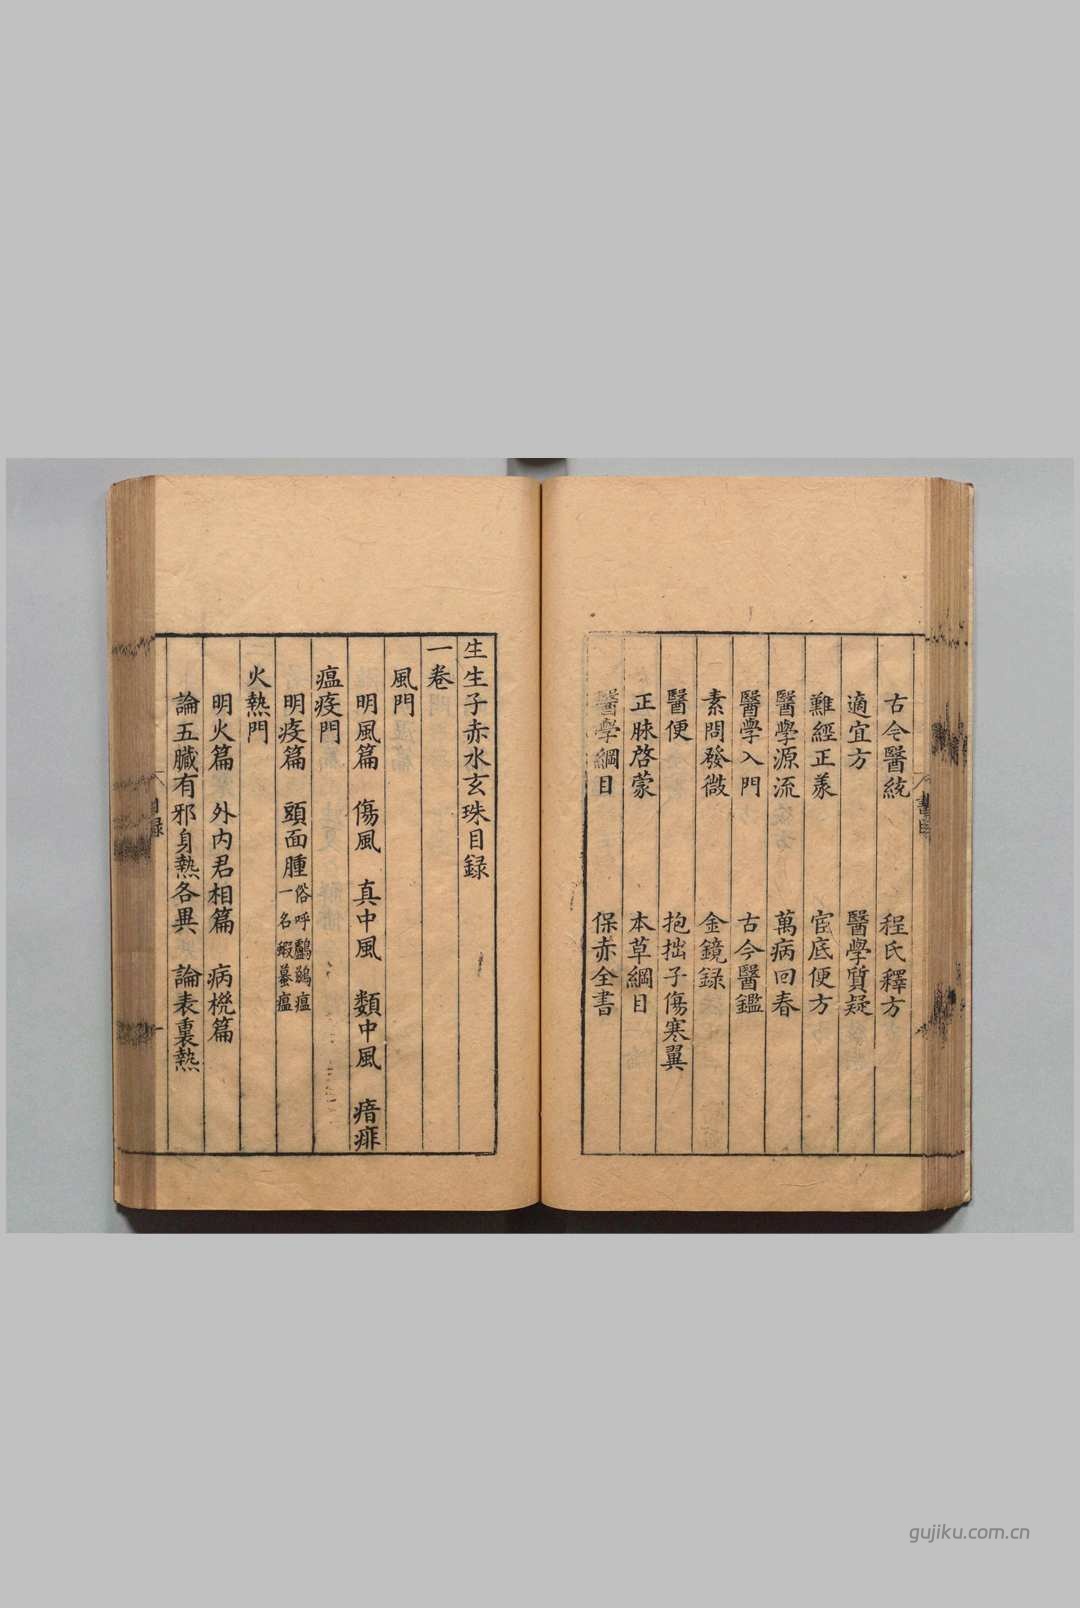 古今醫統　程氏釋方
適宜方　醫學質疑
難經正義　官底便方
醫學源流　萬病回春
醫學入門　古今醫鑑
素問發微　金鏡録
醫便　抱拙子傷寒翼
正脉啓蒙　本草綱目
醫學綱目　保赤全書
生生子赤水玄珠目録
一卷
風門
明風篇　傷風　真中風　類中風　瘖痱
瘟疫門
明疫篇　頭面腫俗呼鸕鷀瘟一名蝦蟇瘟
火熱門
明火篇　外内君相篇　病機篇
論五臟有邪身熱各異　論表裏熱
目録
gujiku.com.cn